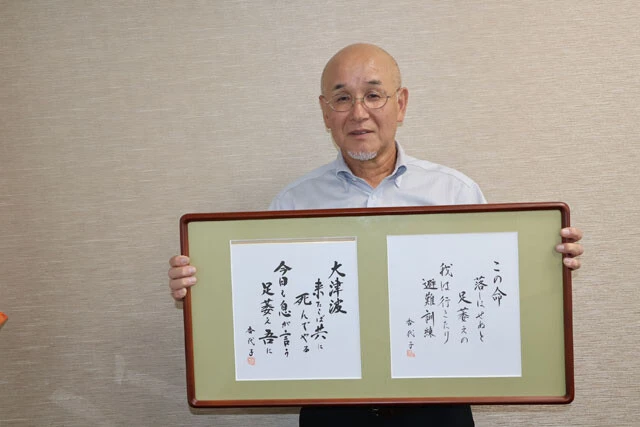 この命
落しはせぬと
足萎えの
我は行きたり
避難訓練
香代子
大津波
来たらば共に
死んでやる
今日も息が言う
足萎え吾に
香代子